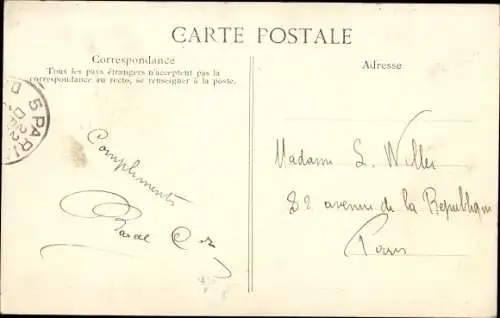 CARTE POSTALE
Correspondance
Tous les pays étrangers n'acceptent pas la
correspondance au recto, se renseigner à la poste.
Adresse
5 PARI
Compliments
Madame L. Willer
82 avenue de la République
Paris